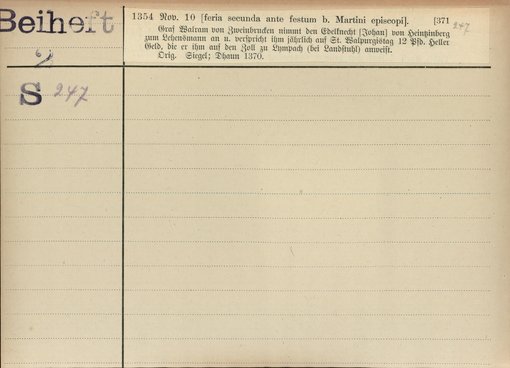 Beiheft
2
S 247
1354 Nov. 10 [feria secunda ante festum b. Martini episcopi]. [371 247
Graf Walram von Zweinbrucken nimmt den Edelknecht [Johan] von Heintzinberg
zum Lehensmann an u. verspricht ihm jährlich auf St. Walpurgistag 12 Pfd. Heller
Geld, die er ihm auf den Zoll zu Lympach (bei Landstuhl) anweist.
Orig. Siegel; Dhaun 1370.